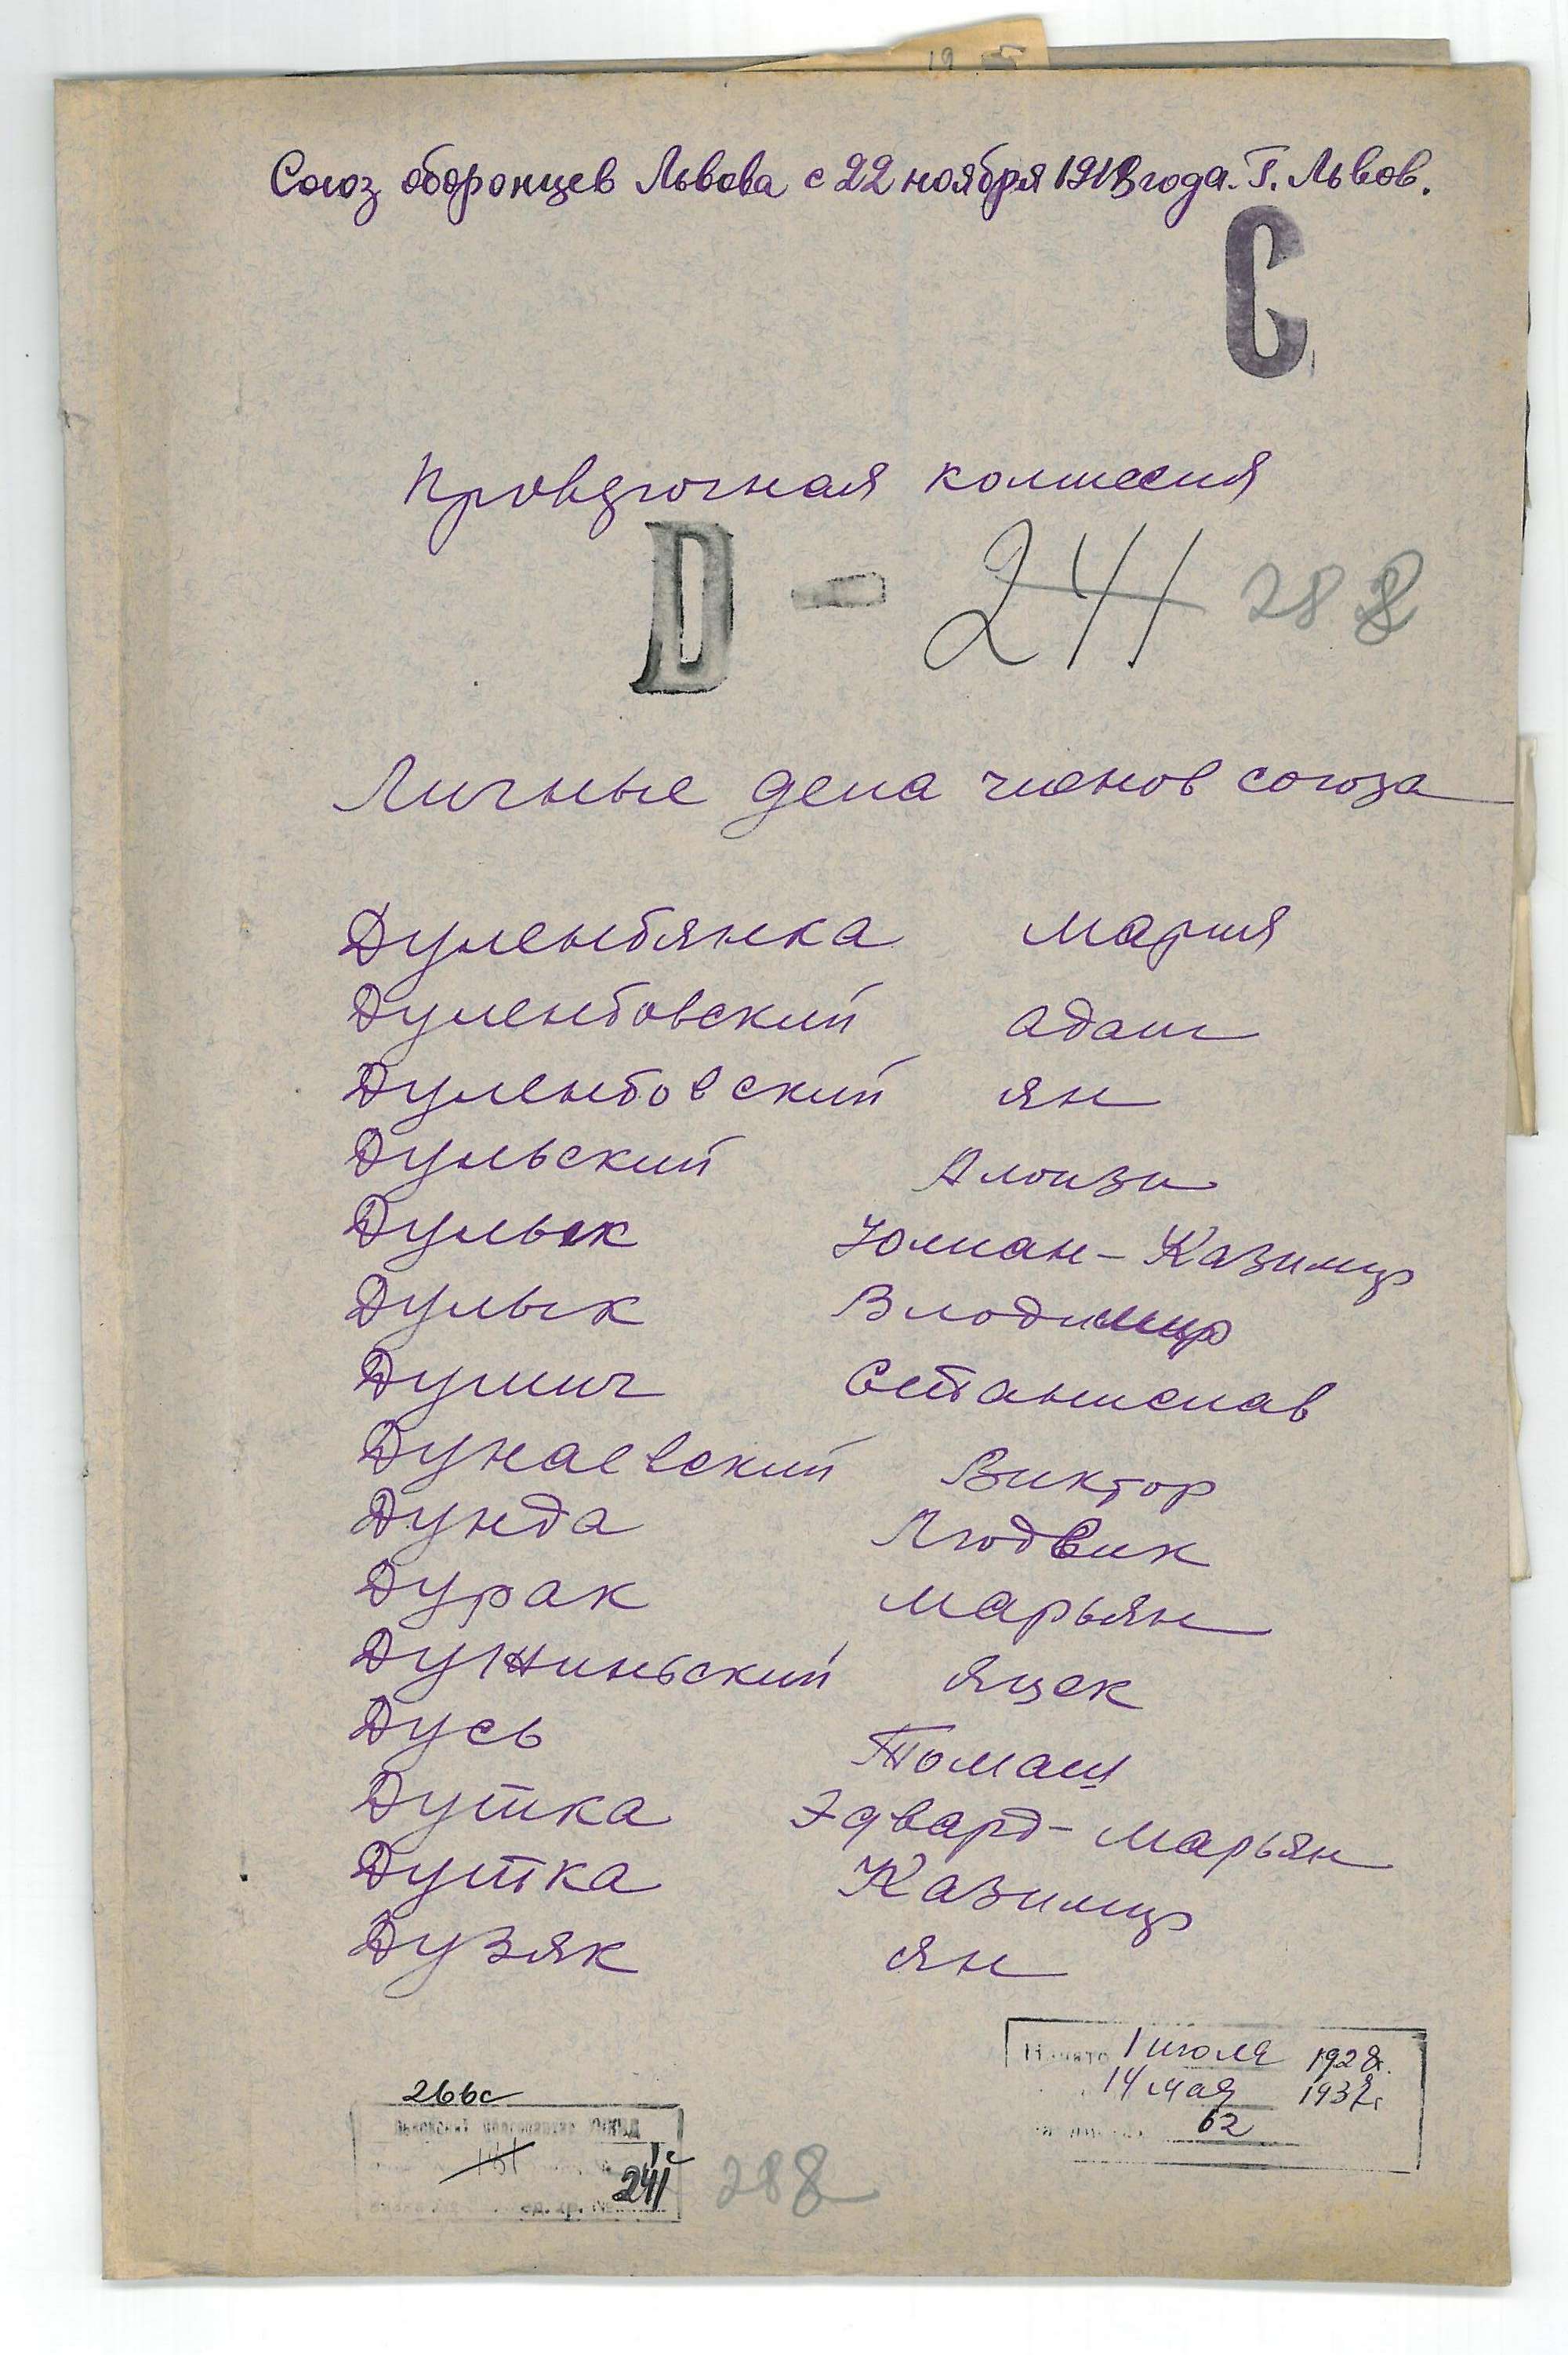 Союз оборонцев Львова с 22 ноября 1918 года. Г. Львов.
С
Проверочная комиссия
D - 241 288
Личные дела членов союза
Дулембянка Мария
Дулембовский Адам
Дулембовский Ян
Дульский Алоизи
Дулык Юлиан-Казимир
Дулык Влодимир
Думич Станислав
Дунаевский Виктор
Дунда Людвик
Дурак Марьян
Дужиньский Яцек
Дусь Томаш
Дутка Эдвард-Марьян
Дутка Казимир
Дузяк Ян
Начато 1 июля 1928г.
14 мая 1937г.
62
266с
241с
288